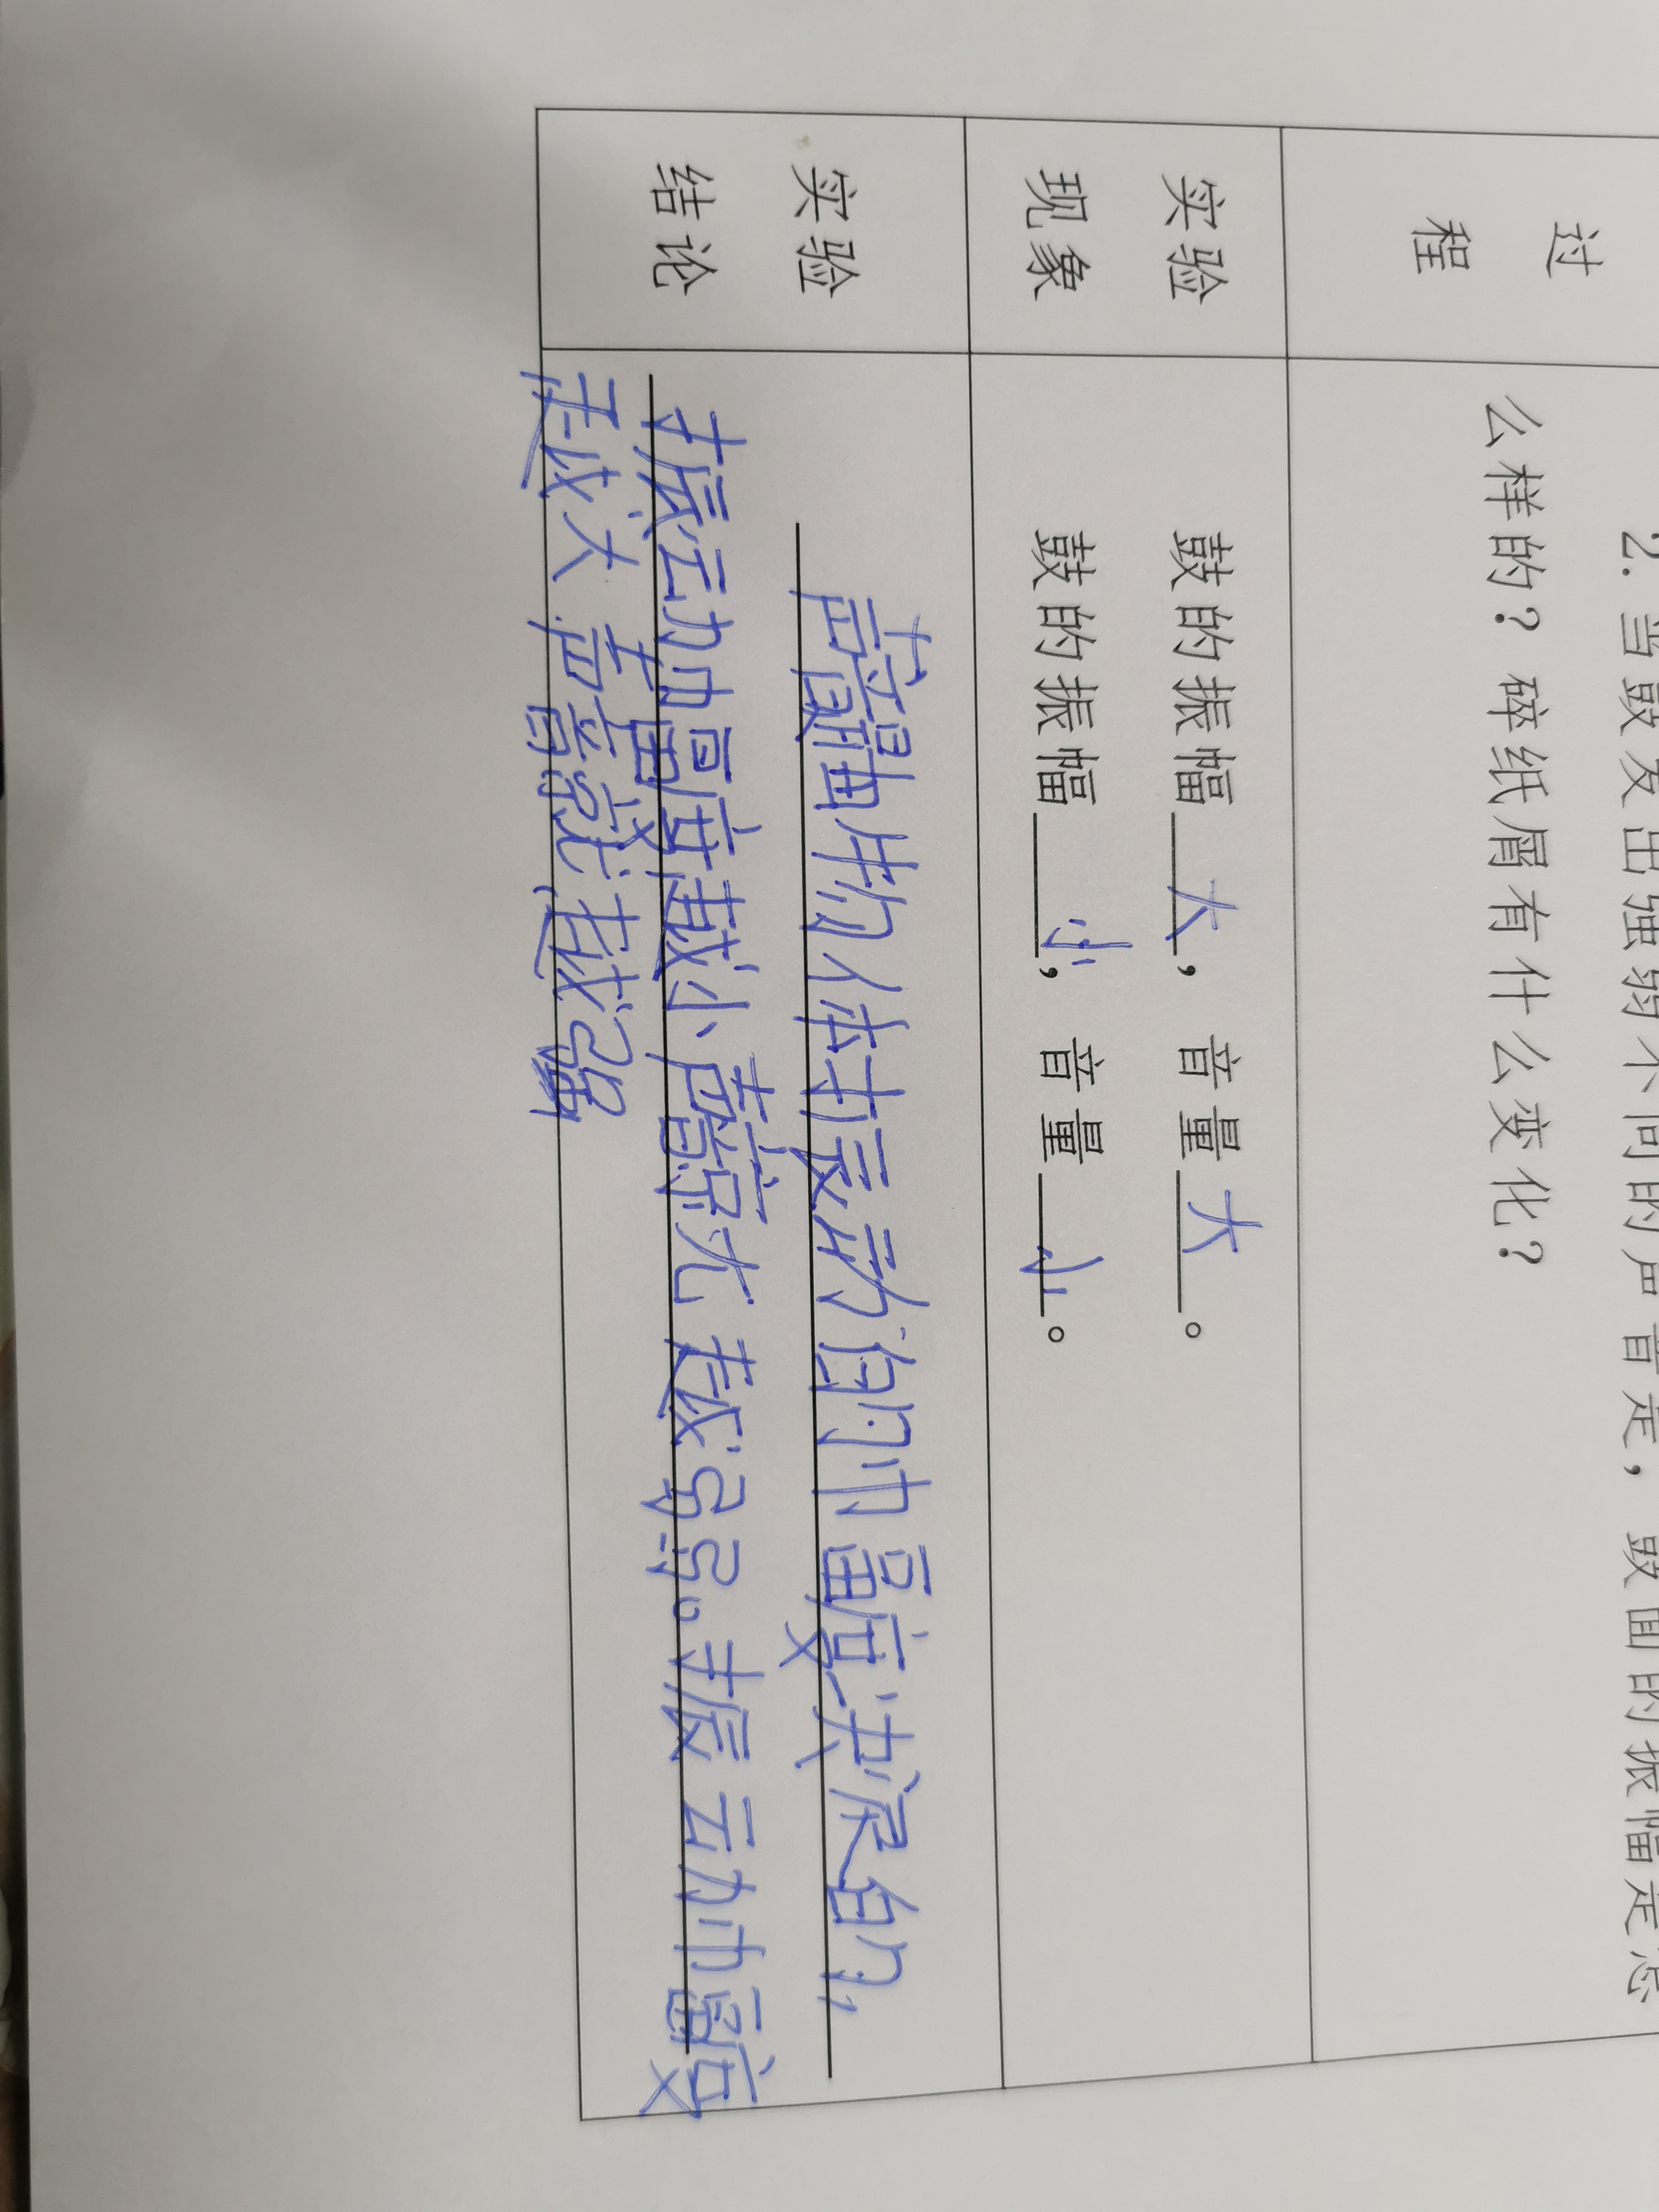 2. 当鼓发出强弱不同的声音是，鼓面的振幅是怎
么样的？碎纸屑有什么变化？
过
程
实验
现象
鼓的振幅大，音量大。
鼓的振幅小，音量小。
实验
结论
声音是由物体振动的幅度决定的，
振动幅度越小声音就越弱。振动幅度
越大声音就越强